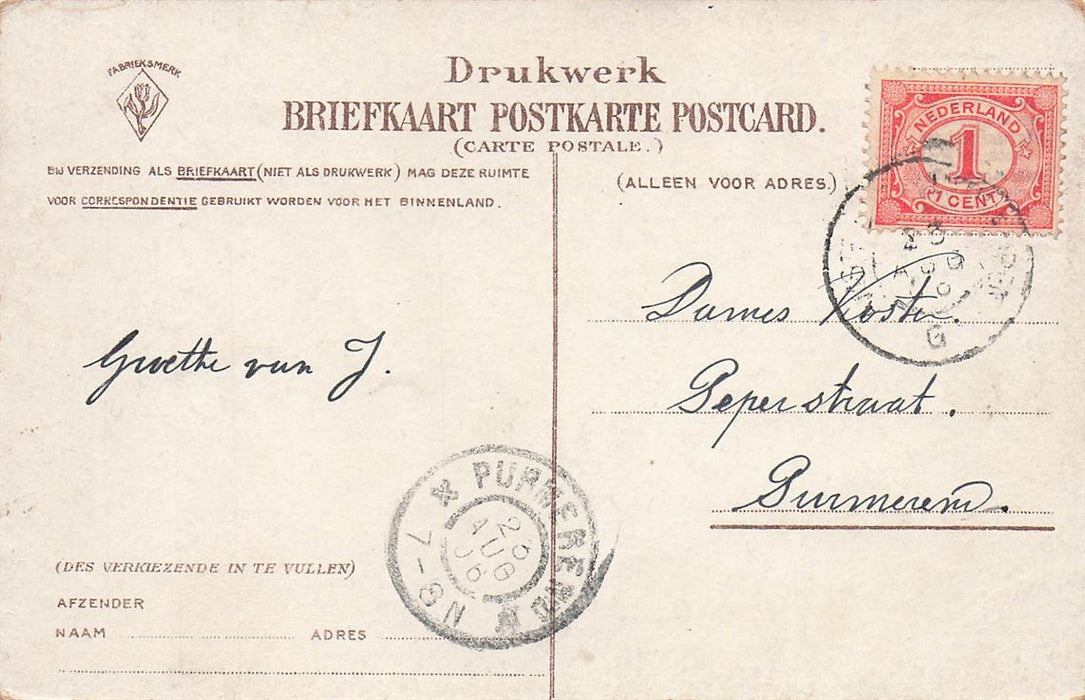 FABRIEKSMERK
Drukwerk
BRIEFKAART POSTKARTE POSTCARD.
(CARTE POSTALE.)
BIJ VERZENDING ALS BRIEFKAART (NIET ALS DRUKWERK) MAG DEZE RUIMTE
VOOR CORRESPONDENTIE GEBRUIKT WORDEN VOOR HET BINNENLAND.
(ALLEEN VOOR ADRES.)
NEDERLAND
1
1 CENT
Dames Koster.
Peperstraat.
Purmerend.
Groethe van J.
PURMEREND
26
AUG
06
7-8N
(DES VERKIEZENDE IN TE VULLEN)
AFZENDER
NAAM ADRES